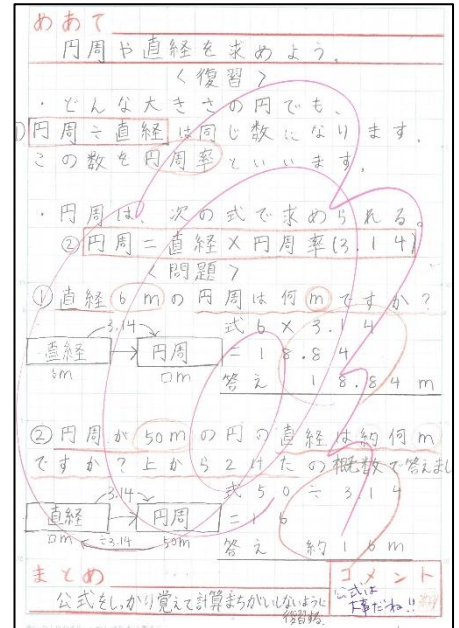 めあて
円周や直経を求めよう。
〈復習〉
・どんな大きさの円でも、
①円周÷直経は同じ数になります。
この数を円周率といいます。
・円周は、次の式で求められる。
②円周=直経×円周率(3.14)
〈問題〉
①直経6mの円周は何mですか?
3.14
式6×3.14
直経→円周
=18.84
6m □m
答え 18.84m
②円周が50mの円の直経は約何m
ですか?上から2けたの概数で答えまし
3.14
式50÷3.14
直経→円周
=16
□m ÷3.14 50m
答え 約16m
まとめ
コメント
公式をしっかり覚えて計算まちがいしないように
復習する。
公式は
大事だね!!